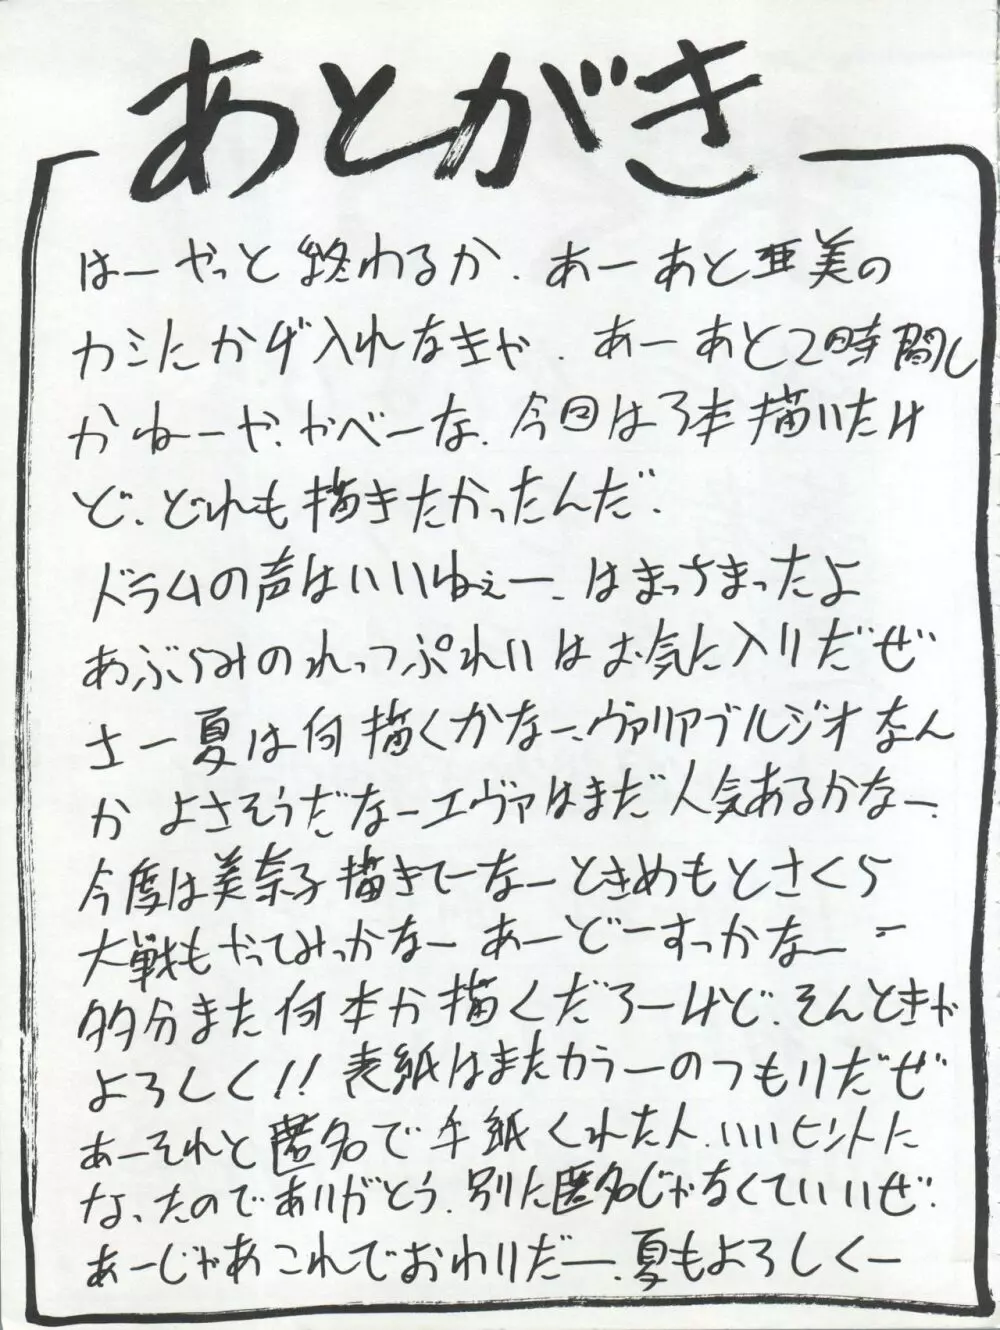 あとがき
はーやっと終わるか、あーあと亜美の
カシたかげ入れなきゃ、あーあと2時間し
かねーや、やべーな、今回は3本描いたけ
ど、どれも描きたかったんだ、
ドラムの声はいいねぇー、はまっさまったよ
あぶらみのれっつぷれいはお気に入りだぜ
さー夏は何描くかなー、ヴァリアブルジオなん
かよさそうだなーエヴァはまだ人気あるかなー、
今度は美奈子描きてーなーときめもとさくら
大戦もやってみっかなー あーどーすっかなーー
多分また何本か描くだろーけど、そんときゃ
よろしく!!表紙はまたカラーのつもりだぜ
あーそれと匿名で手紙くれた人、いいヒントに
なったのでありがとう、別に匿名じゃなくていいぜ、
あーじゃあこれでおわりだー、夏もよろしくー